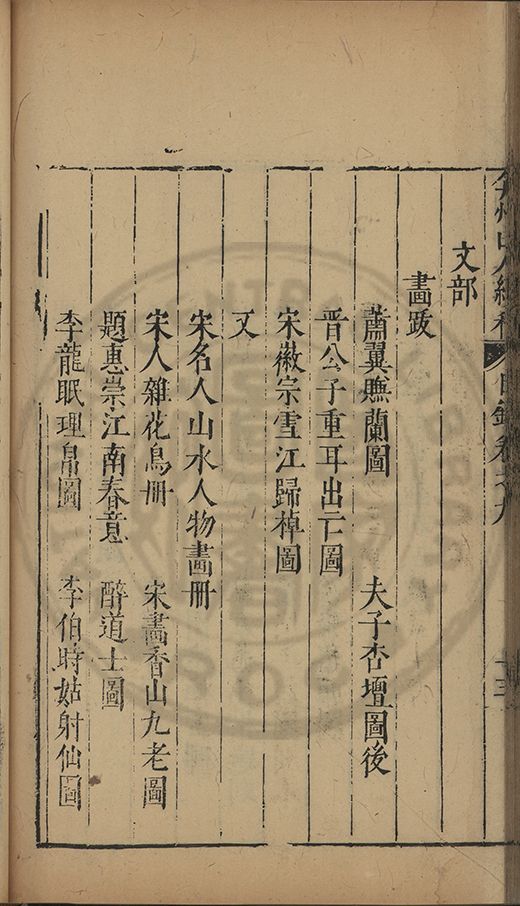 文部
畫跋
蕭翼賺蘭圖 夫子杏壇圖後
晉公子重耳出亡圖
宋徽宗雪江歸棹圖
又
宋名人山水人物畫冊
宋人雜花鳥冊 宋畫香山九老圖
題惠崇江南春意 醉道士圖
李龍眠理帛圖 李伯時姑射仙圖